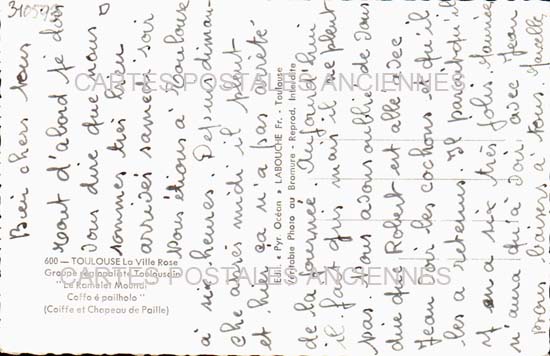 310595
Bien chers tous
Tout d'abord je dois
vous dire que nous
sommes très bien
arrivés samedi soir
nous étions à Toulouse
à six heures. Depuis diman-
che après midi il pleut
et hier ça n'a pas arrêté
de la journée. Aujourd'hui
il fait gris mais il ne pleut
pas. Nous avons oublié de vous
dire que Robert est allé avec
Jean voir les cochons et qu'il
les a retenus. Il parait qu'il
y en a six très jolis. Mamée
n'aura qu'à voir avec Jean
gros baisers à tous. Marcelle
600 — TOULOUSE La Ville Rose
Groupe Régionaliste Toulousain
"Le Ramelet Moundi
Coffo é pailholo"
(Coiffe et Chepeau de Paille)
Edit. « Pyr Océan » LABOUCHE Fr. - Toulouse
Véritable Photo au Bromure - Reprod. Interdite
CARTES POSTALES ANCIENNES
CARTES POSTALES ANCIENNES